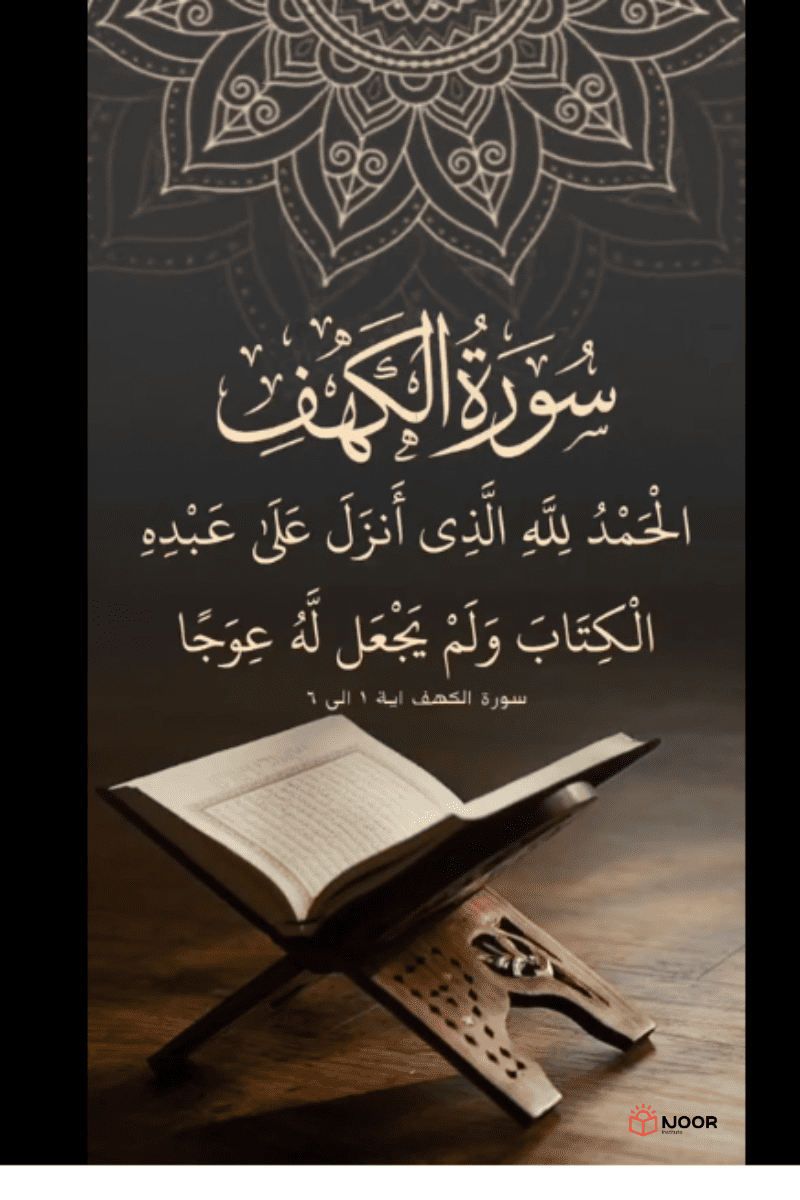 سُورَةُ الْكَهْفِ
الْحَمْدُ لِلَّهِ الَّذِى أَنزَلَ عَلَىٰ عَبْدِهِ
الْكِتَابَ وَلَمْ يَجْعَل لَّهُ عِوَجًا
سورة الكهف اية ١ الى ٦
NOOR
Institute